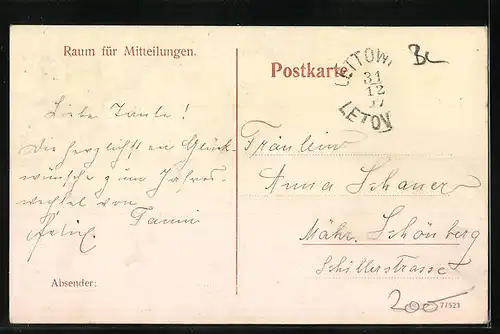 Raum für Mitteilungen.
Liebe Tante!
Die herzlichsten Glück-
wünsche zum Jahres-
wechsel von
Fanni
Postkarte
LETTOW
31
12
07
LETOV
Fräulein
Anna Schauer
Mähr. Schönberg
Schillerstrasse
Absender:
200
77523